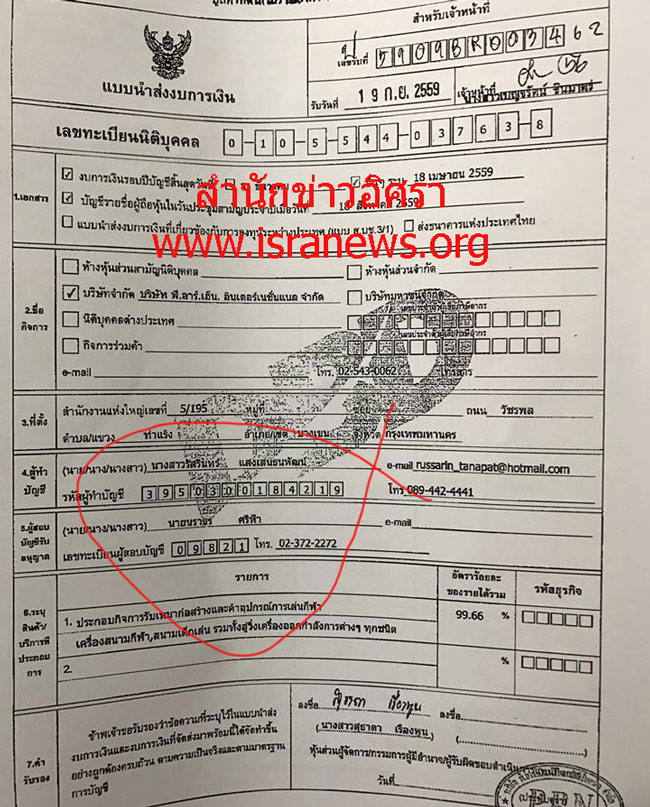 สำหรับเจ้าหน้าที่
เลขรับที่ 59098R003462
แบบนำส่งงบการเงิน
รับวันที่ 19 ก.ย. 2559
เจ้าหน้าที่
เลขทะเบียนนิติบุคคล 0-10-5-544-03763-8
1.เอกสาร
งบการเงินรอบปีบัญชีสิ้นสุดวันที่ 18 เมษายน 2559
บัญชีรายชื่อผู้ถือหุ้นในวันประชุมสามัญประจำปีเมื่อวันที่ 18 สิงหาคม 2559
แบบนำส่งงบการเงินที่เกี่ยวข้องกับการลงทุนระหว่างประเทศ (แบบ ส.บช.3/1) ส่งธนาคารแห่งประเทศไทย
สำนักข่าวอิศรา
www.isranews.org
2.ชื่อกิจการ
ห้างหุ้นส่วนสามัญนิติบุคคล ห้างหุ้นส่วนจำกัด
บริษัทจำกัด บริษัท พี.อาร์.เอ็น. อินเตอร์เนชั่นแนล จำกัด บริษัทมหาชนจำกัด
นิติบุคคลต่างประเทศ
กิจการร่วมค้า
e-mail โทร. 02-543-0062 โทรสาร
3.ที่ตั้ง
สำนักงานแห่งใหญ่เลขที่ 5/195 หมู่ที่ ซอย ถนน วัชรพล
ตำบล/แขวง ท่าแร้ง อำเภอ/เขต บางเขน จังหวัด กรุงเทพมหานคร
4.ผู้ทำบัญชี
(นาย/นาง/นางสาว) นางสาวรัสรินทร์ แสงเสนธนพัฒน์ e-mail russarin_tanapat@hotmail.com
รหัสผู้ทำบัญชี 3950300184219 โทร 089-442-4441
5.ผู้สอบบัญชีรับอนุญาต
(นาย/นาง/นางสาว) นายนราธร ศรีฟ้า e-mail
เลขทะเบียนผู้สอบบัญชี 09821 โทร. 02-372-2272
6.ระบุสินค้า/บริการที่ประกอบการ
รายการ อัตราร้อยละของรายได้รวม รหัสธุรกิจ
1. ประกอบกิจการรับเหมาก่อสร้างและค้าอุปกรณ์การเล่นกีฬา 99.66 %
เครื่องสนามกีฬา,สนามเด็กเล่น รวมทั้งลู่วิ่งเครื่องออกกำลังกายต่างๆ ทุกชนิด
2. %
7.คำรับรอง
ข้าพเจ้าขอรับรองว่าข้อความที่ระบุไว้ในแบบนำส่ง
งบการเงินและงบการเงินที่จัดส่งมาพร้อมนี้ได้จัดทำขึ้น
อย่างถูกต้องครบถ้วน ตามความเป็นจริงและตามมาตรฐาน
การบัญชี
ลงชื่อ ลงชื่อ
(นางสาวสุธาดา เรืองหุน)
หุ้นส่วนผู้จัดการ/กรรมการผู้มีอำนาจ/ผู้รับผิดชอบดำเนิน
วันที่